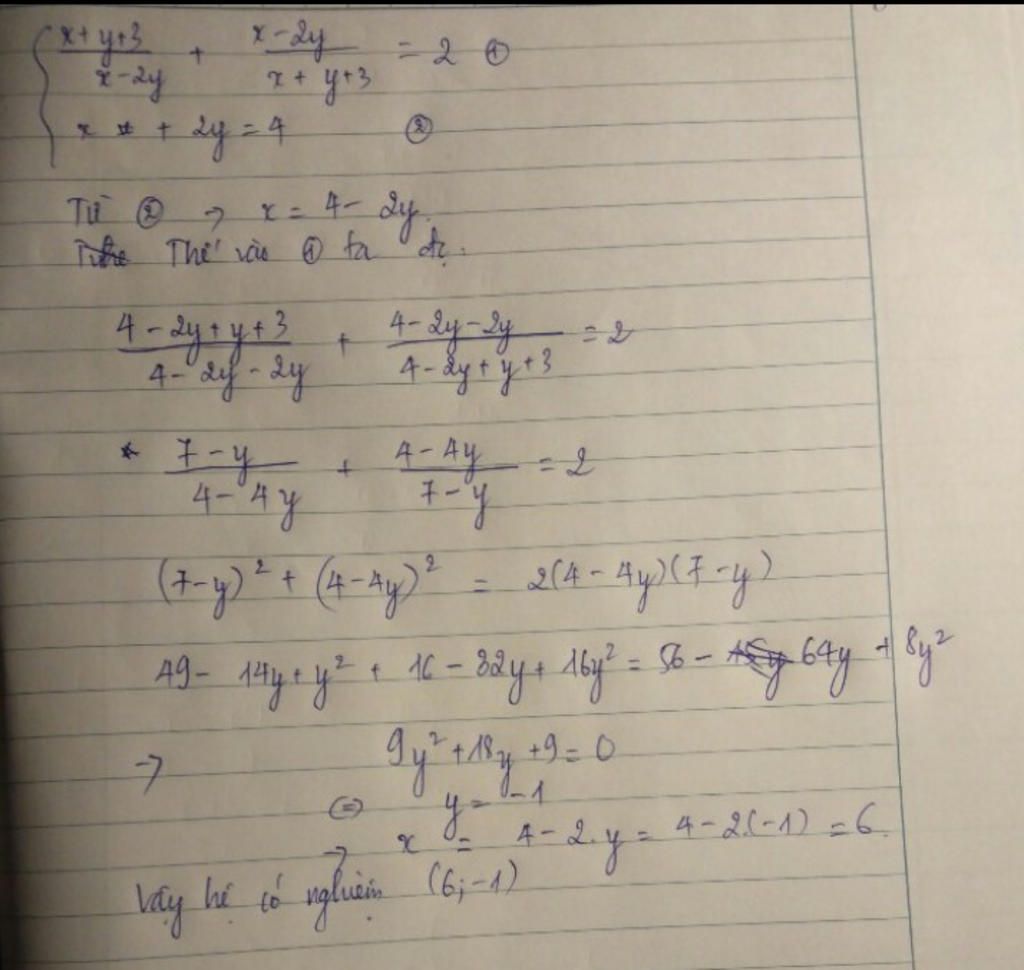 { (x+y+3)/(x-2y) + (x-2y)/(x+y+3) = 2 ①
x + 2y = 4 ②
Từ ② → x = 4 - 2y.
Thế vào ① ta đc:
(4-2y+y+3)/(4-2y-2y) + (4-2y-2y)/(4-2y+y+3) = 2
* (7-y)/(4-4y) + (4-4y)/(7-y) = 2
(7-y)² + (4-4y)² = 2(4-4y)(7-y)
49 - 14y + y² + 16 - 32y + 16y² = 56 - 64y + 8y²
→ 9y² + 18y + 9 = 0
⇔ y = -1
→ x = 4 - 2.y = 4 - 2.(-1) = 6.
Vậy hệ có nghiệm (6;-1)